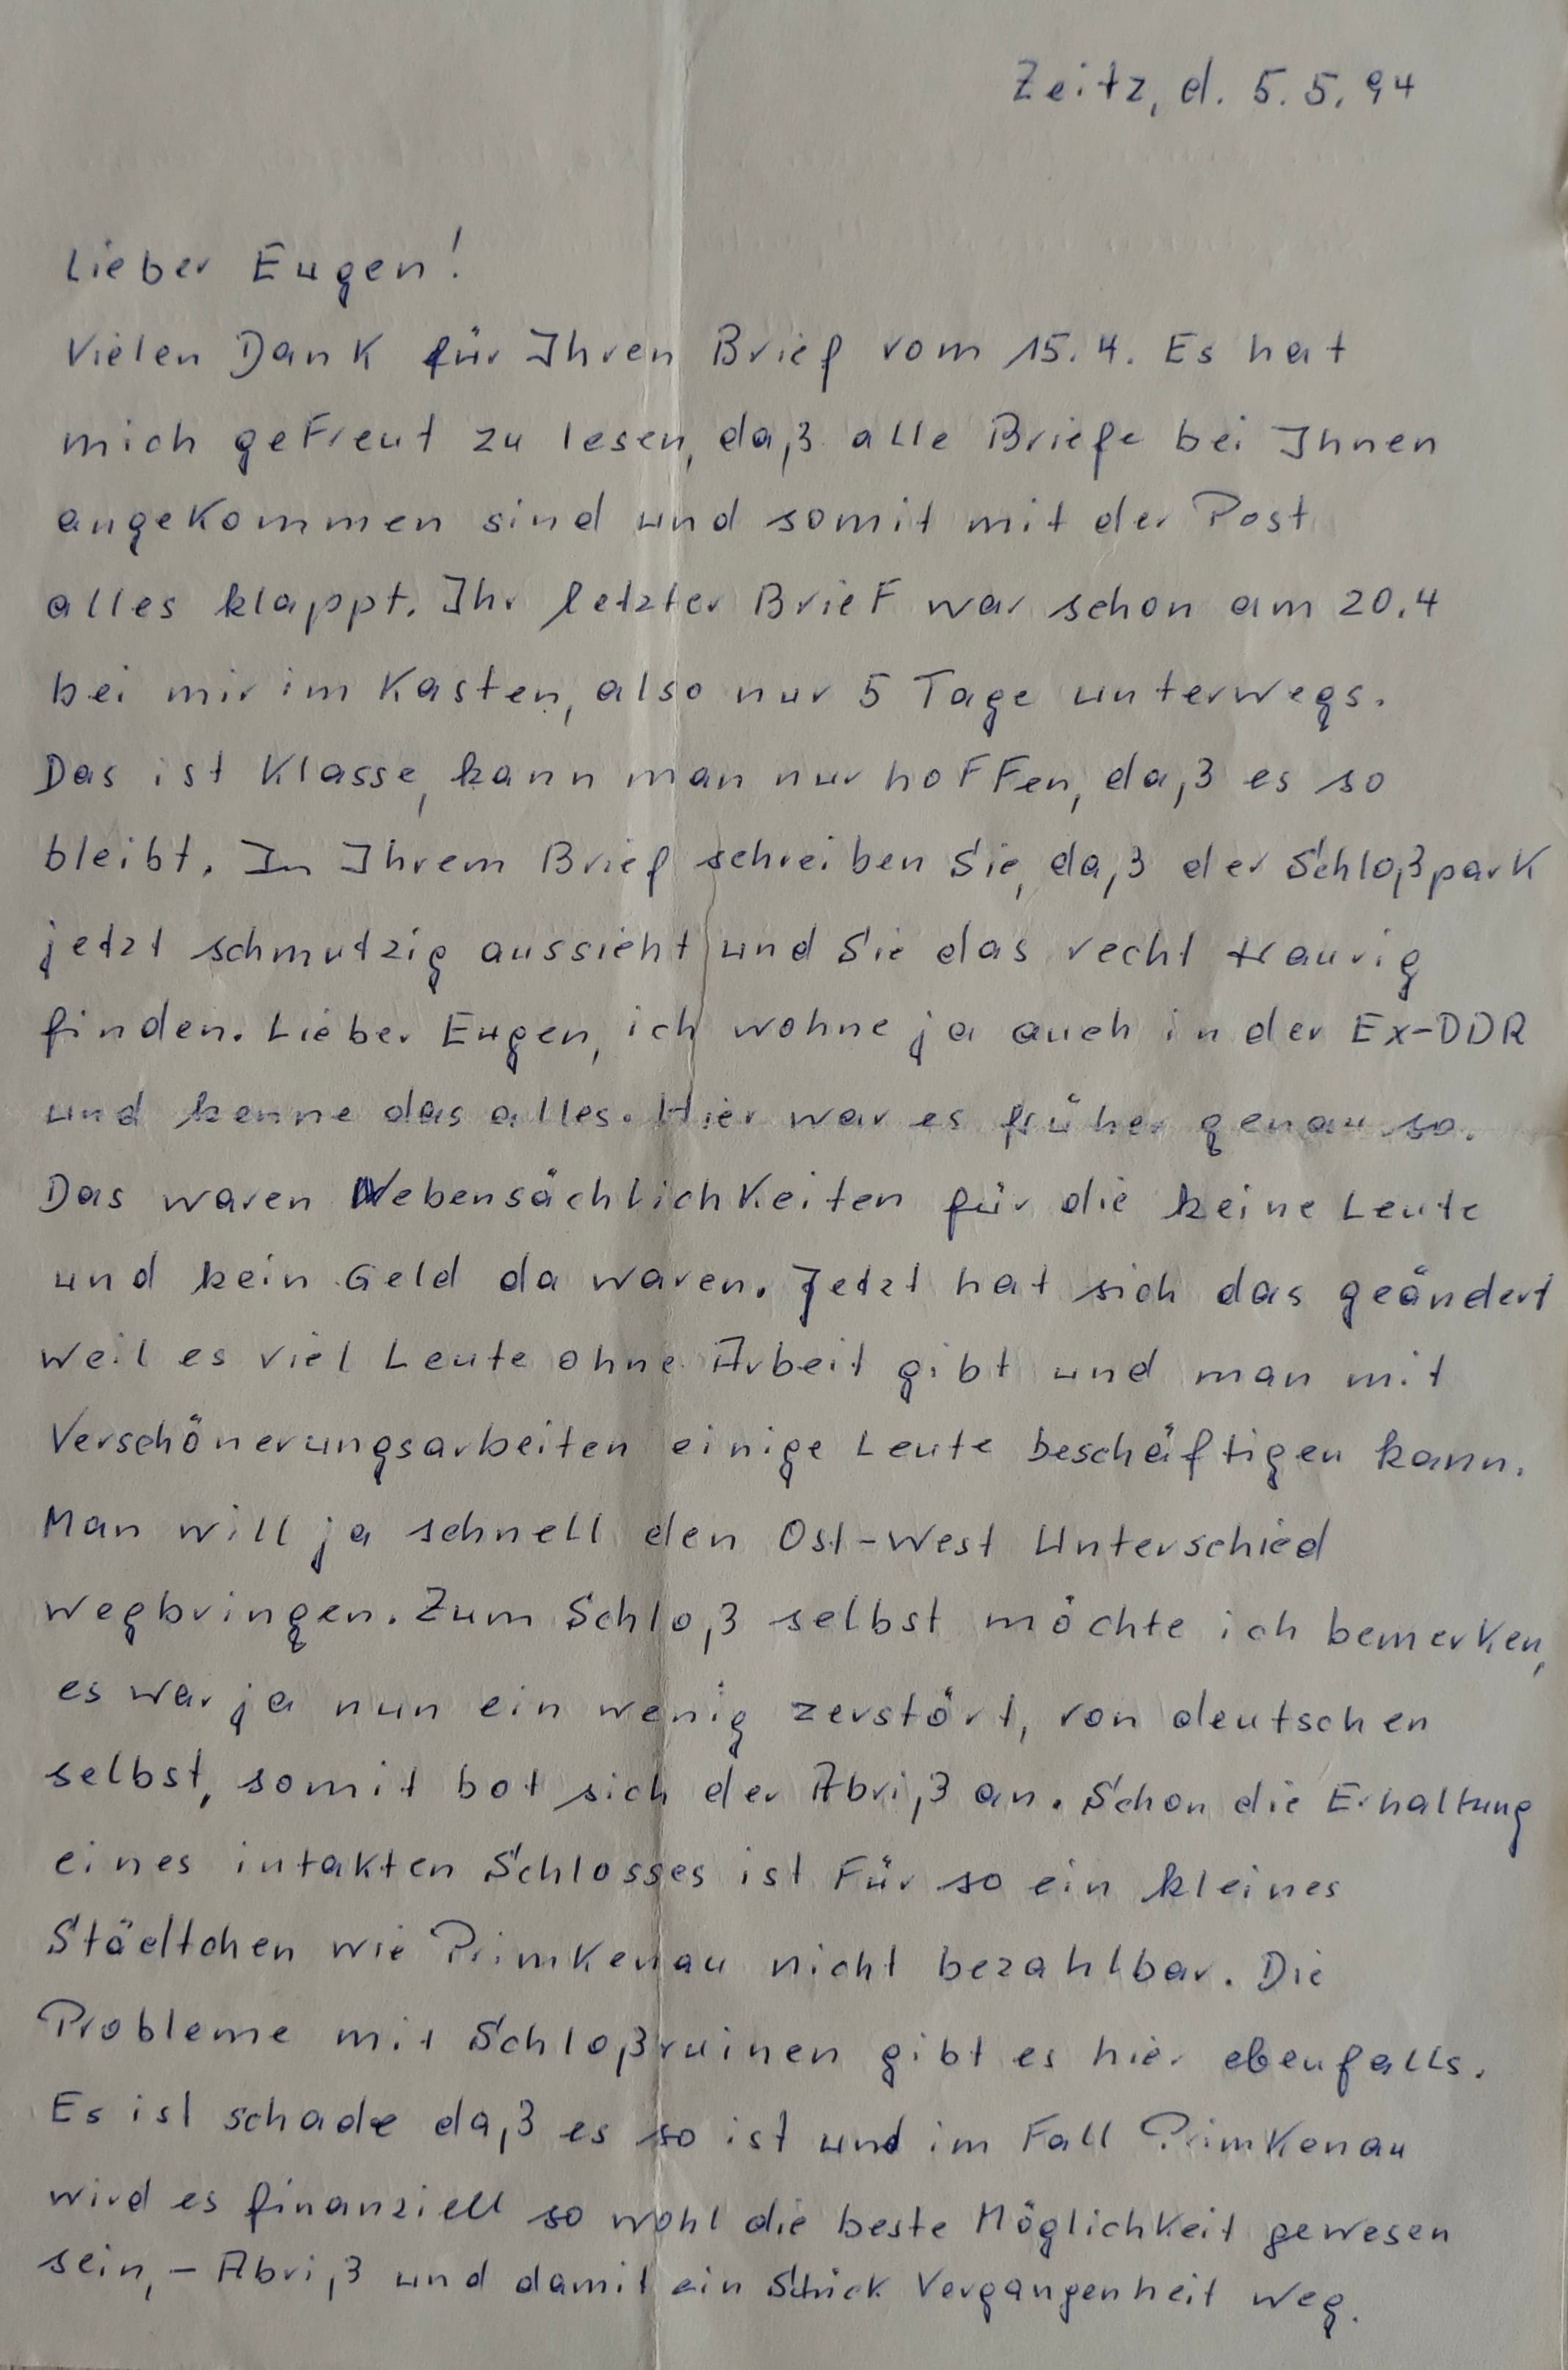 Zeitz, d. 5.5.94
Lieber Eugen!
Vielen Dank für Ihren Brief vom 15.4. Es hat
mich gefreut zu lesen, daß alle Briefe bei Ihnen
angekommen sind und somit mit der Post
alles klappt. Ihr letzter Brief war schon am 20.4
bei mir im Kasten, also nur 5 Tage unterwegs.
Das ist Klasse, kann man nur hoffen, daß es so
bleibt. In Ihrem Brief schreiben Sie, daß der Schloßpark
jetzt schmutzig aussieht und Sie das recht traurig
finden. Lieber Eugen, ich wohne ja auch in der Ex-DDR
und kenne das alles. Hier war es früher genau so.
Das waren Nebensächlichkeiten für die keine Leute
und kein Geld da waren. Jetzt hat sich das geändert
weil es viel Leute ohne Arbeit gibt und man mit
Verschönerungsarbeiten einige Leute beschäftigen kann.
Man will ja schnell den Ost-West Unterschied
wegbringen. Zum Schloß selbst möchte ich bemerken,
es war ja nun ein wenig zerstört, von deutschen
selbst, somit bot sich der Abriß an. Schon die Erhaltung
eines intakten Schlosses ist für so ein kleines
Städtchen wie Primkenau nicht bezahlbar. Die
Probleme mit Schloßruinen gibt es hier ebenfalls.
Es ist schade daß es so ist und im Fall Primkenau
wird es finanziell so wohl die beste Möglichkeit gewesen
sein, - Abriß und damit ein Stück Vergangenheit weg.